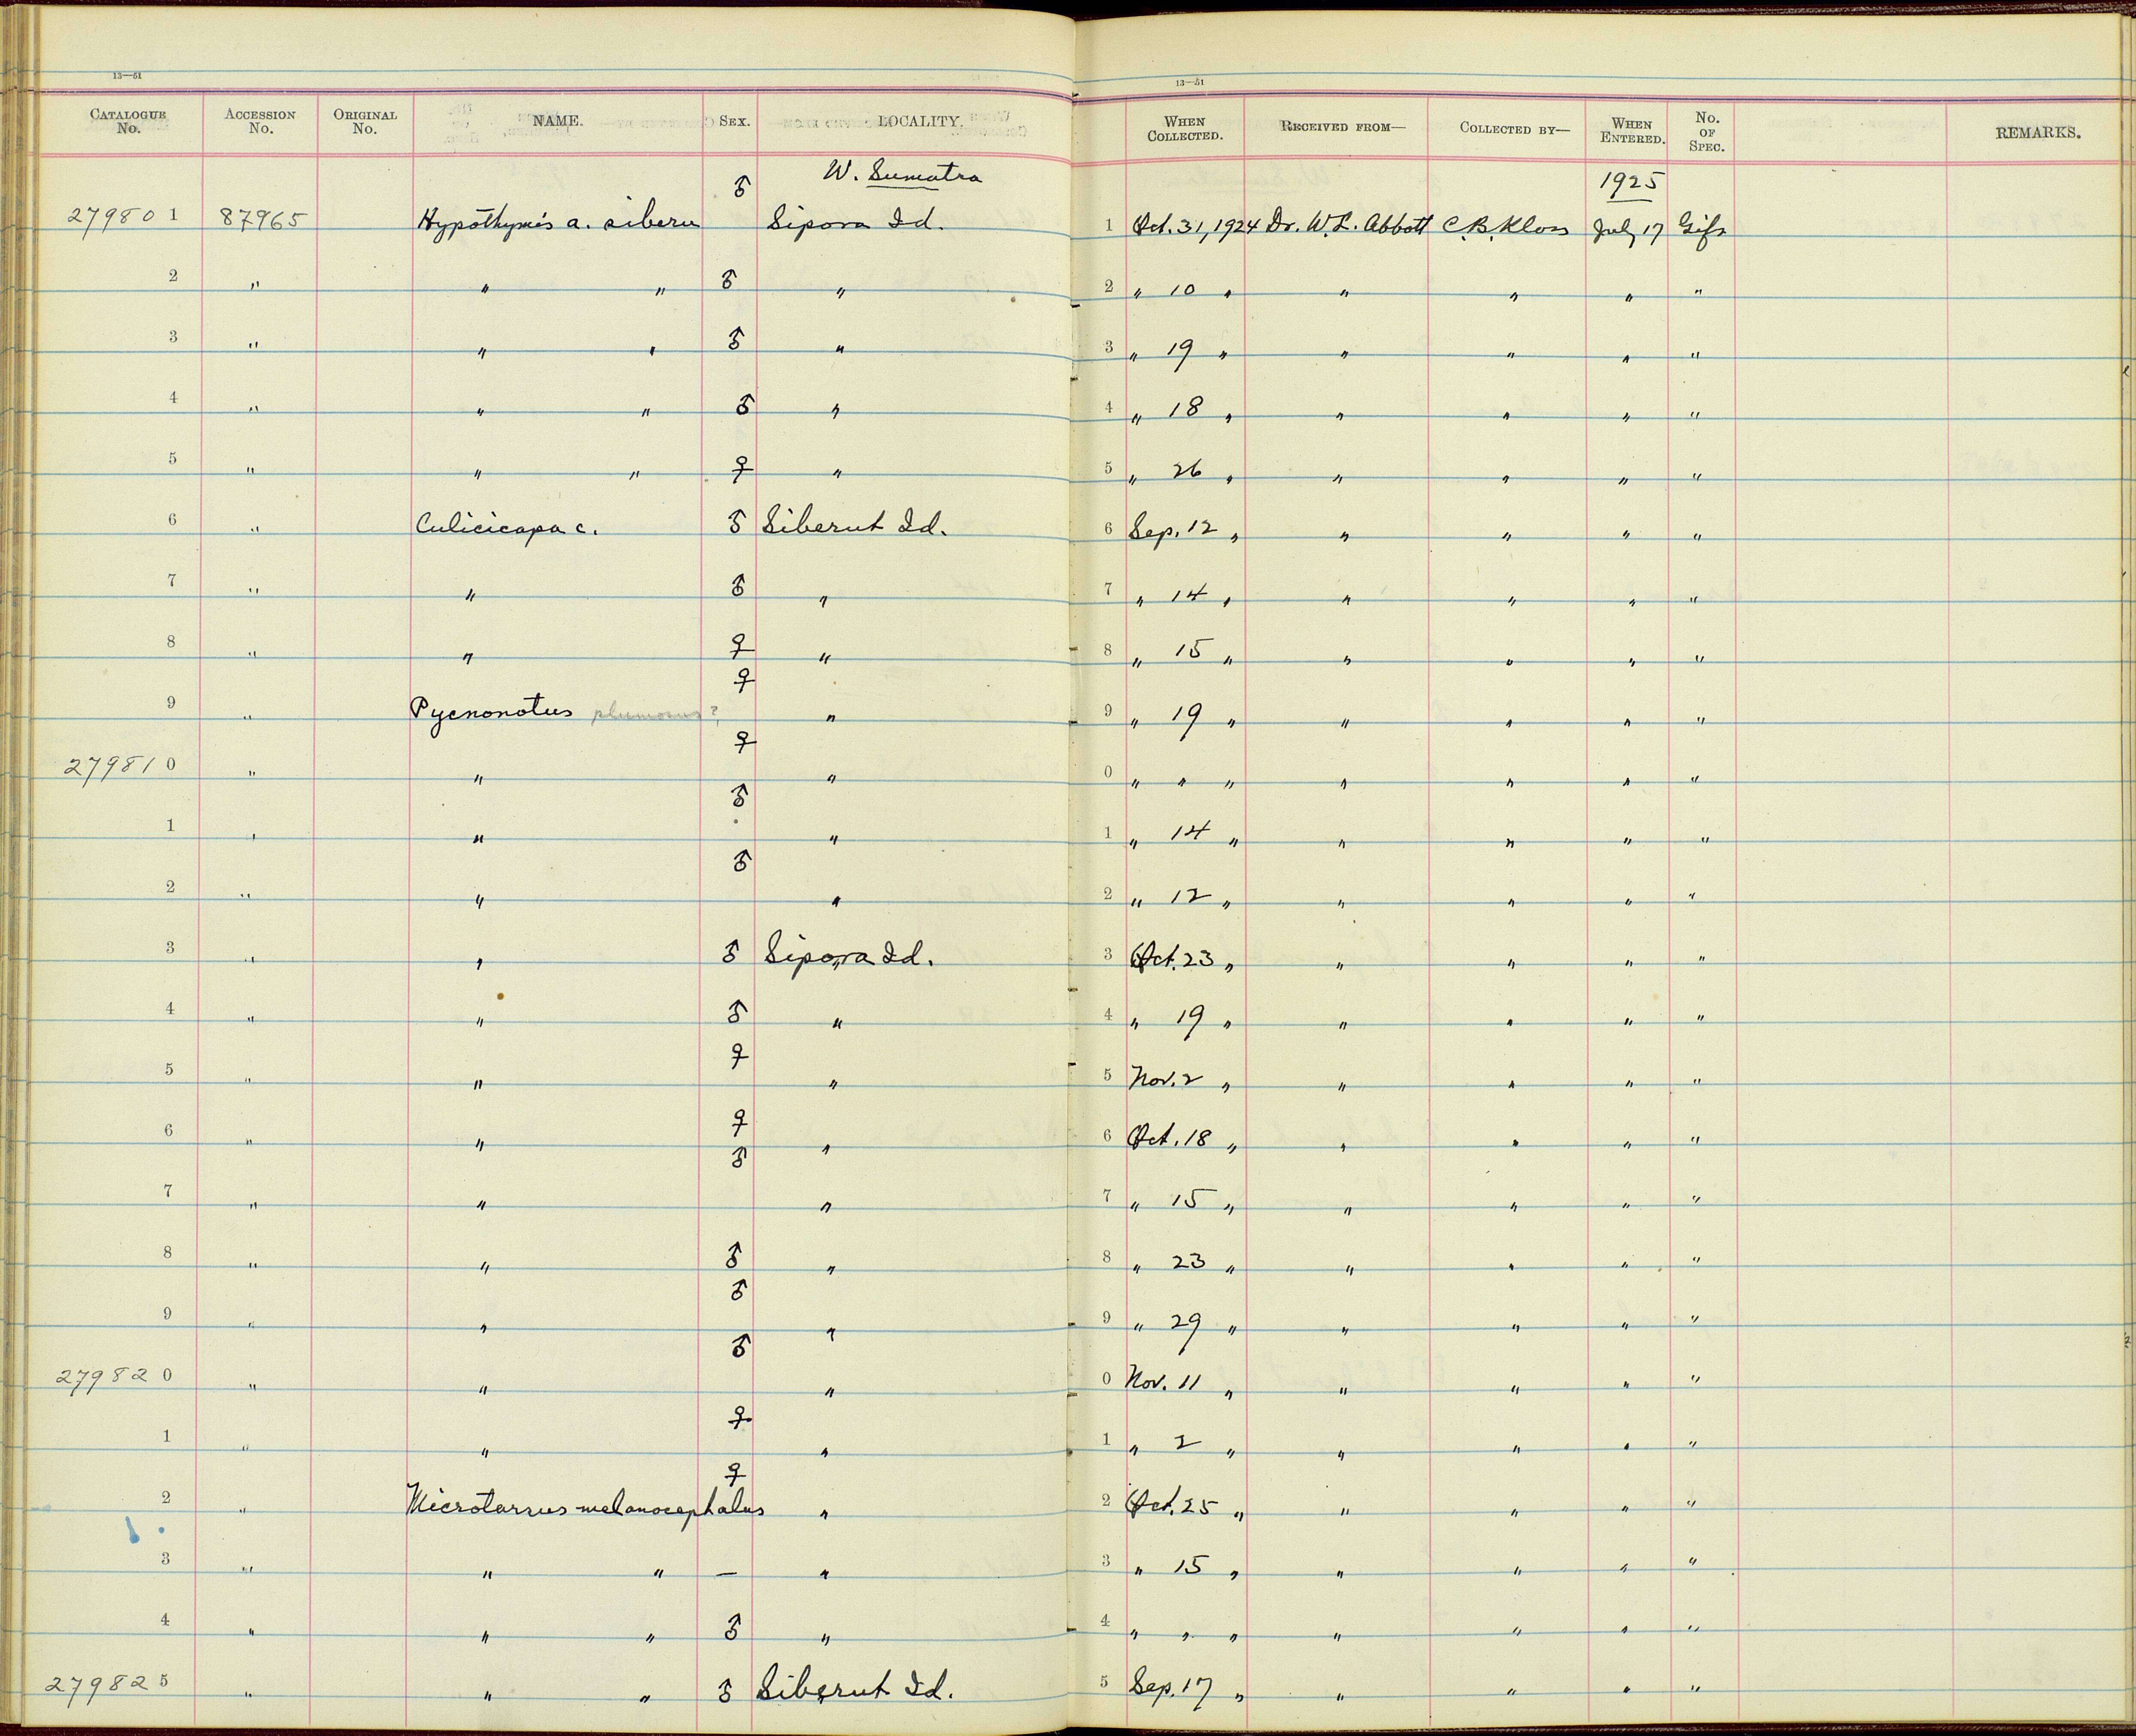 13—51 13—51
CATALOGUE No. ACCESSION No. ORIGINAL No. NAME. SEX. LOCALITY. WHEN COLLECTED. RECEIVED FROM— COLLECTED BY— WHEN ENTERED. No. OF SPEC. REMARKS.
W. Sumatra 1925
279801 87965 Hypothymis a. siberu ♂ Sipora Id. 1 Oct. 31, 1924 Dr. W. L. Abbott C. B. Kloss July 17 Gift
2 " " " ♂ " 2 " 10 " " " " "
3 " " " ♂ " 3 " 19 " " " " "
4 " " " ♂ " 4 " 18 " " " " "
5 " " " ♀ " 5 " 26 " " " " "
6 " Culicicapa c. ♂ Siberut Id. 6 Sep. 12 " " " " "
7 " " ♂ " 7 " 14 " " " " "
8 " " ♀ " 8 " 15 " " " " "
9 " Pycnonotus plumosus? ♀ " 9 " 19 " " " " "
279810 " " ♀ " 0 " " " " " " "
1 " " ♂ " 1 " 14 " " " " "
2 " " ♂ " 2 " 12 " " " " "
3 " " ♂ Sipora Id. 3 Oct. 23 " " " " "
4 " " ♂ " 4 " 19 " " " " "
5 " " ♀ " 5 Nov. 2 " " " " "
6 " " ♀ " 6 Oct. 18 " " " " "
7 " " ♂ " 7 " 15 " " " " "
8 " " ♂ " 8 " 23 " " " " "
9 " " ♂ " 9 " 29 " " " " "
279820 " " ♂ " 0 Nov. 11 " " " " "
1 " " ♀ " 1 " 2 " " " " "
2 " Microtarsus melanocephalus ♀ " 2 Oct. 25 " " " " "
3 " " " — " 3 " 15 " " " " "
4 " " " ♂ " 4 " " " " " " "
279825 " " " ♂ Siberut Id. 5 Sep. 17 " " " " "